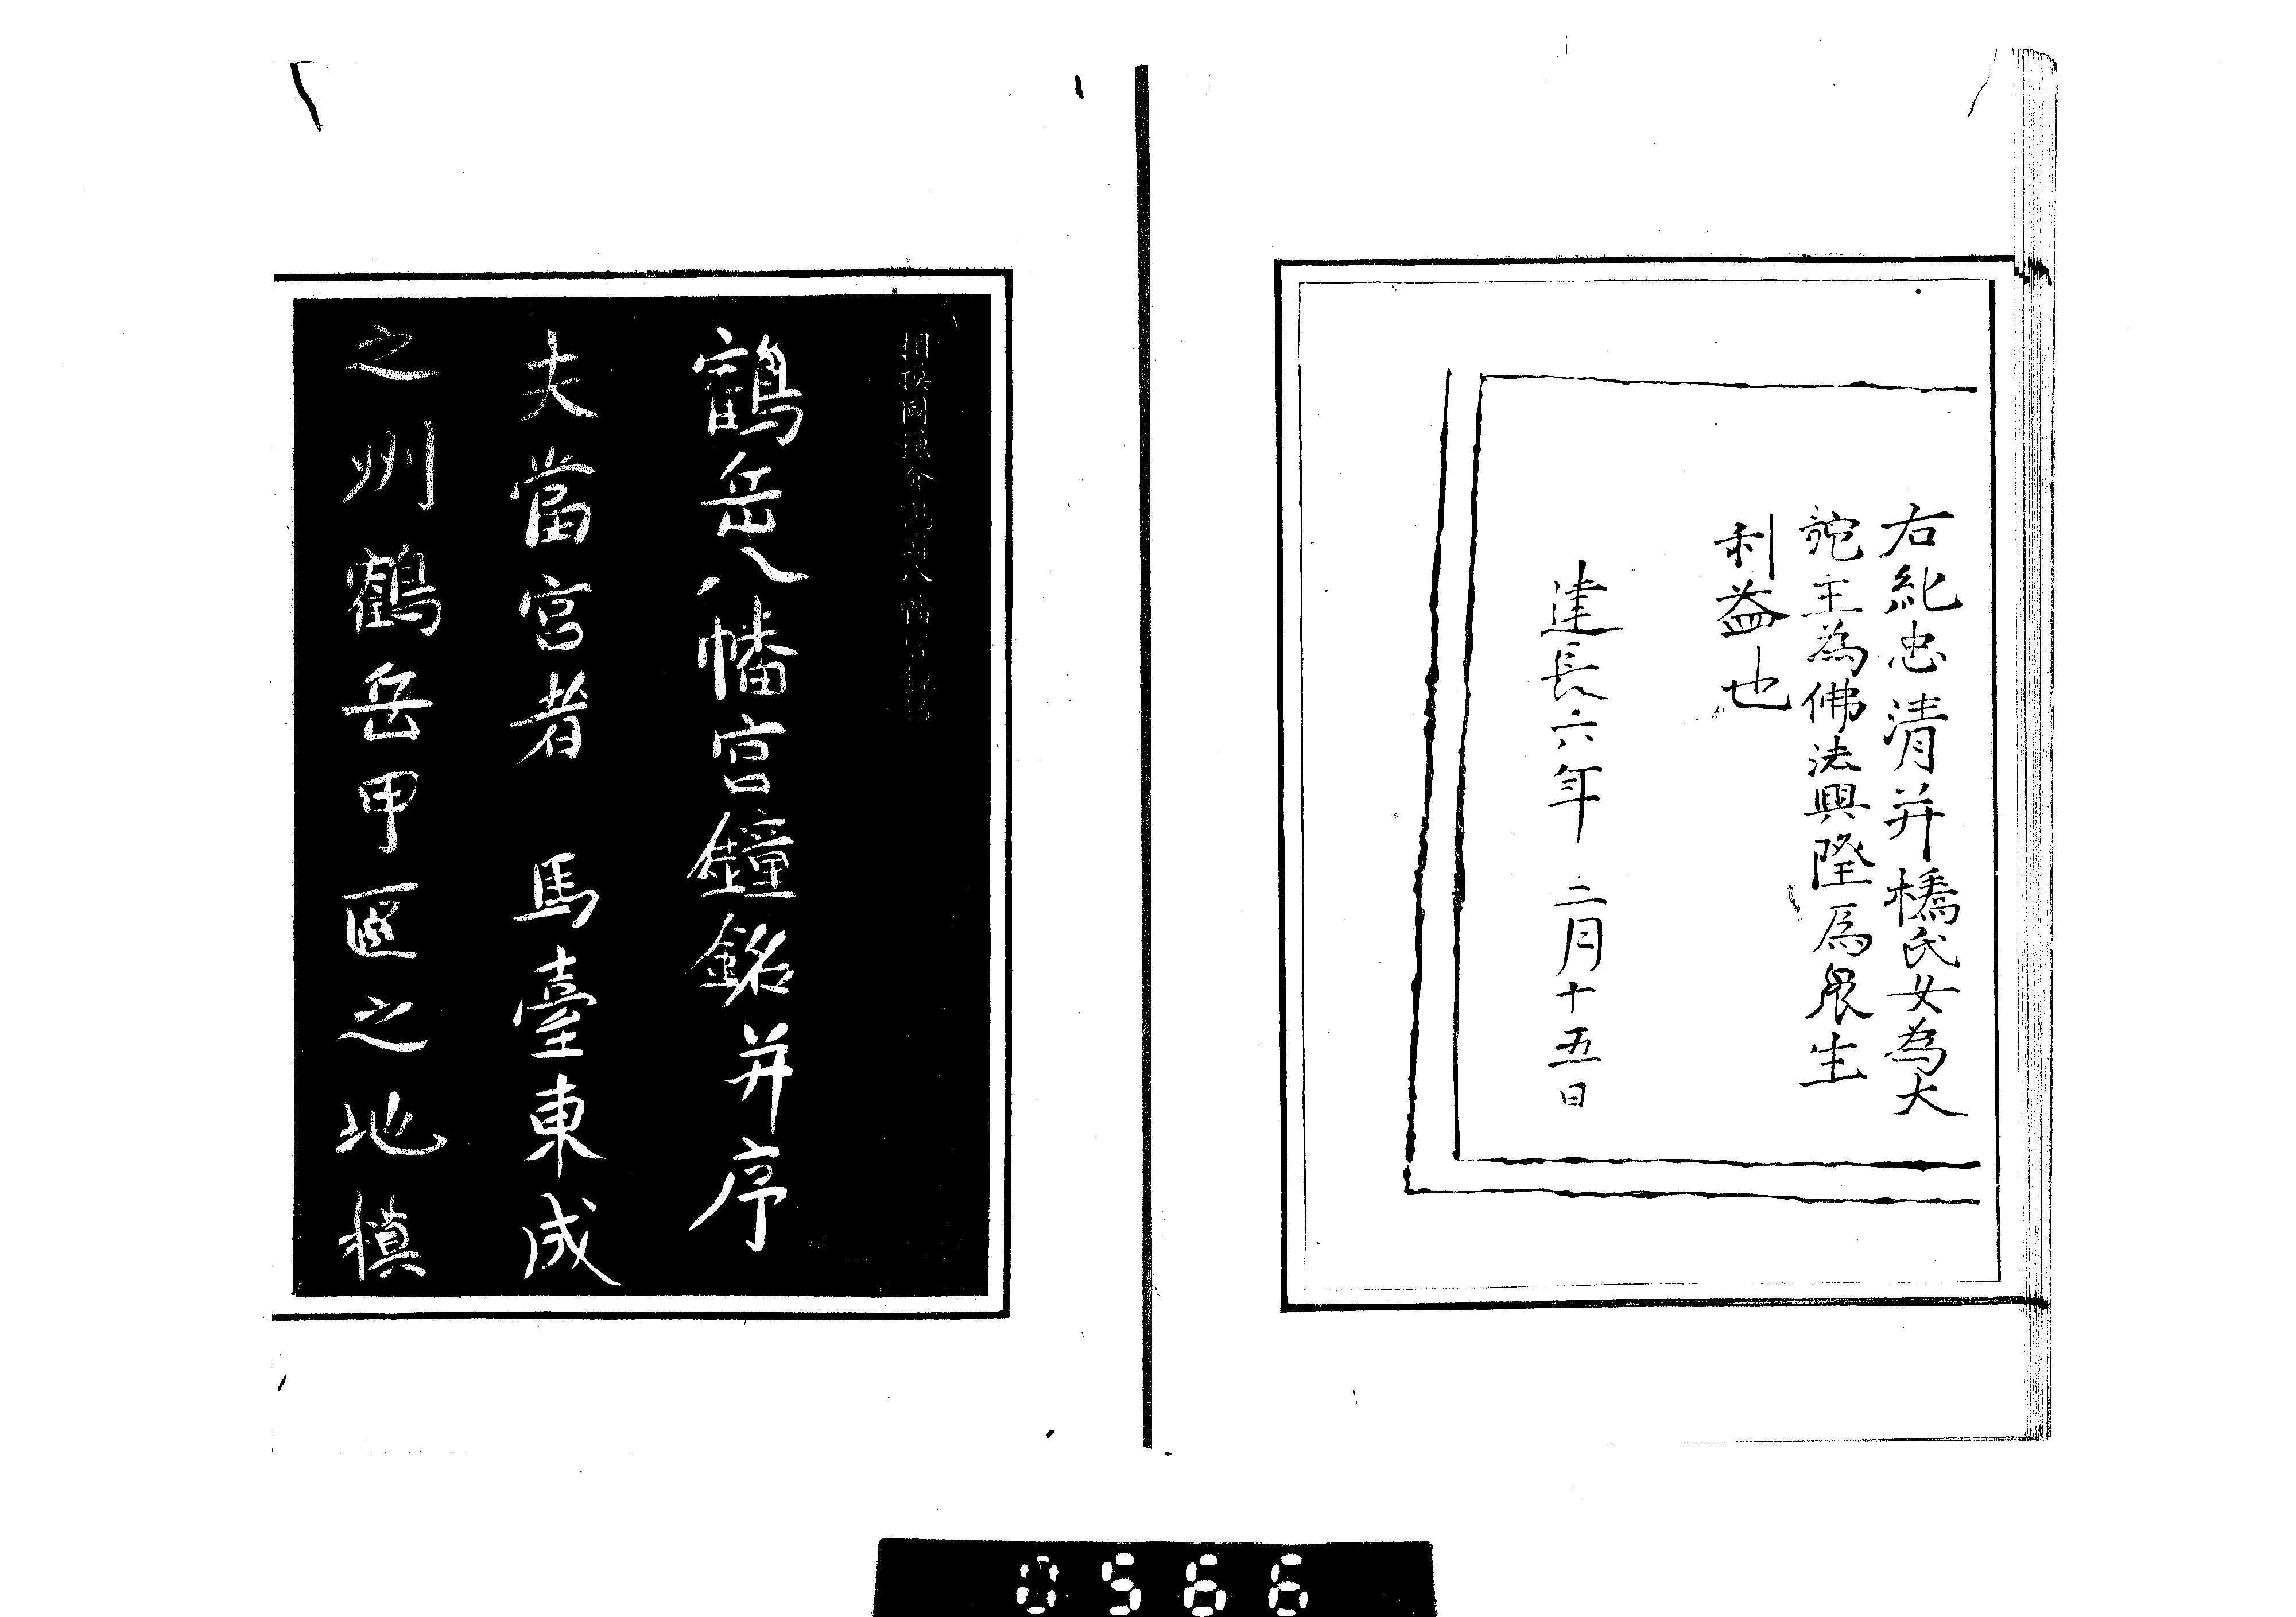 右紀忠清并橋氏女為大
䛐主為佛法興隆為眾生
利益也
建長六年 二月十五日
相摸國鎌倉鶴岡八幡宮鐘銘
鶴岳八幡宮鐘銘并序
夫當宮者 馬臺東成
之州鶴岳甲區之地模
0566